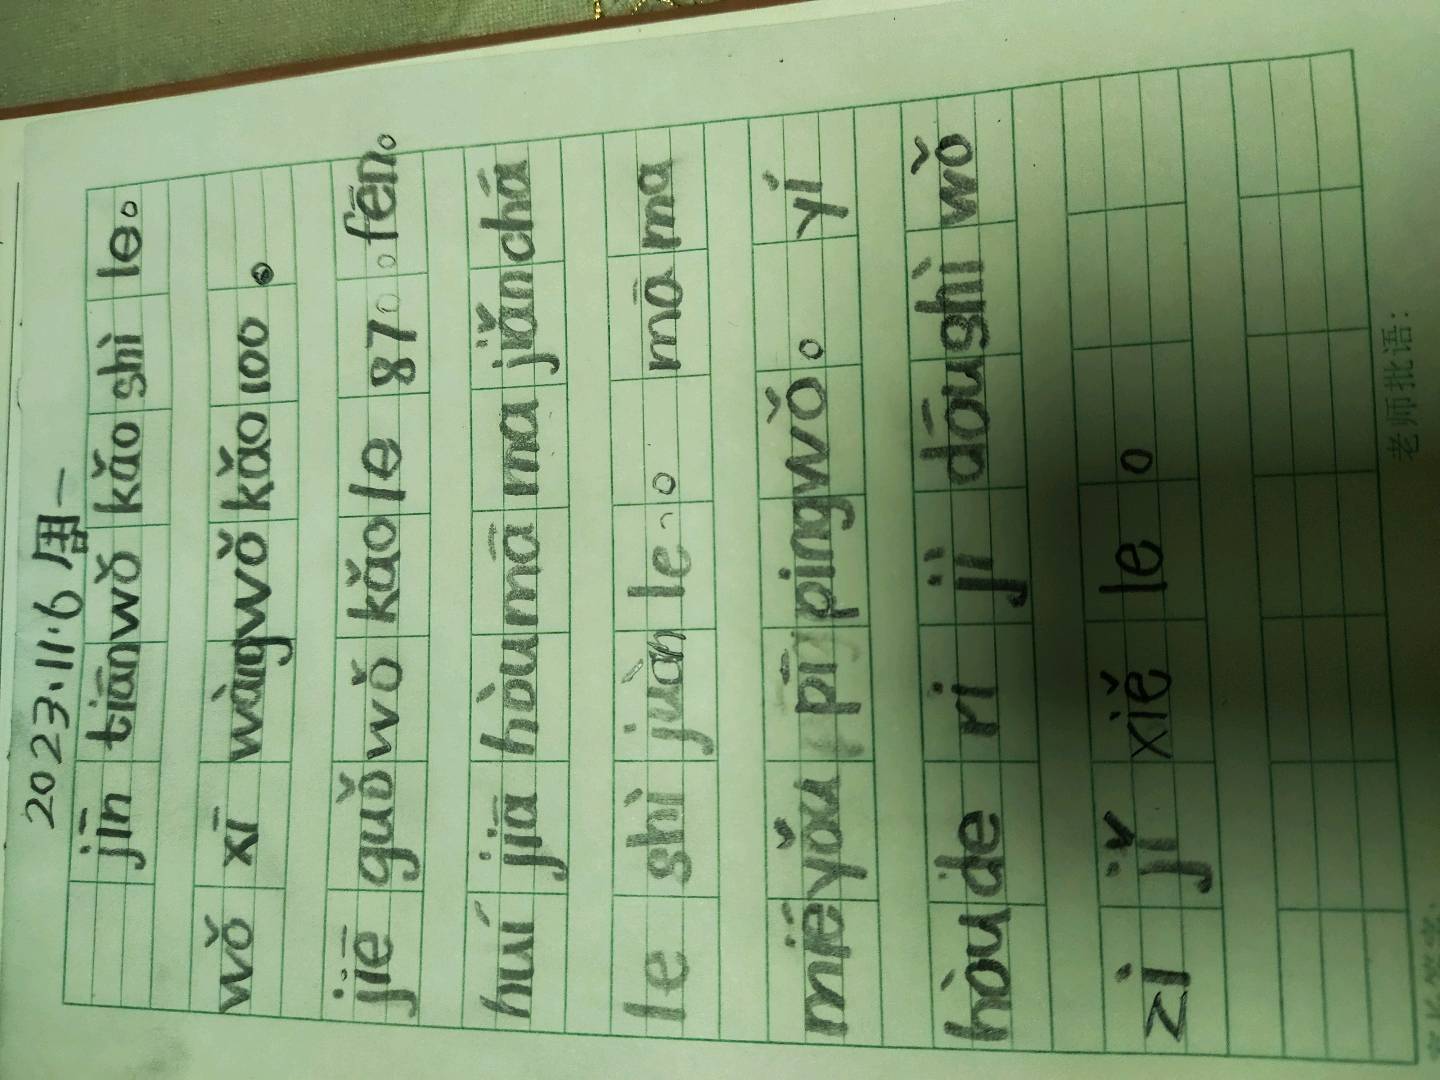 2023.11.6 周一
jīn tiān wǒ kǎo shì le。
wǒ xī wàng wǒ kǎo 100。
jiē guǒ wǒ kǎo le 87。fēn。
huí jiā hòu mā ma jiǎn chá
le shì juàn le。 mā ma
miē yǒu pī píng wǒ。 yí
hòu de ri jì dōu shì wǒ
zì jǐ xiě le。
老师批语：